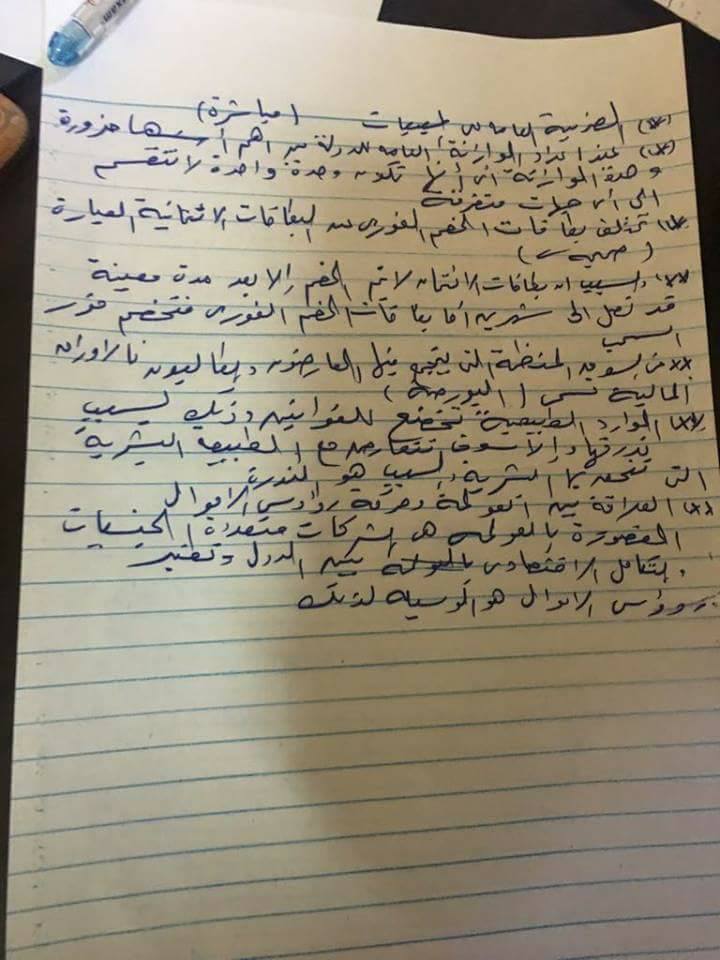 (**) الضريبة العامه لل مبيعات (مباشرة)
(**) عند اعداد الموازنة العامه للدولة من اهم أسسها ضرورة
وحدة الموازنة اى أن تكون وحدة واحدة لا تنقسم
الى متفرقة
** تختلف بطاقات الخصم الفورى عن البطاقات الائتمانية العبارة
(صحيحة)
** والسبب ان بطاقات الائتمان لا يتم الخصم إلا بعد مدة معينة
قد تصل الى شهرين اما بطاقات الخصم الفورى فتخصم فور
السحب
** السوق المنظمة التى يتجمع فيها العارضون والطالبون للاوراق
المالية تسمى (البورصة)
** الموارد الطبيعية تخضع للقوانين وذلك بسبب
ندرتها والأسوف تتعارض مع الطبيعة البشرية
التى البشرية والسبب هو الندرة
** العلاقة بين العولمة وحركة رؤوس الاموال
المقصودة بالعولمه هى الشركات متعددة الجنسيات
والتكامل الاقتصادى بين الدول وتعتبر
رؤوس الاموال هو الوسيله لذلك